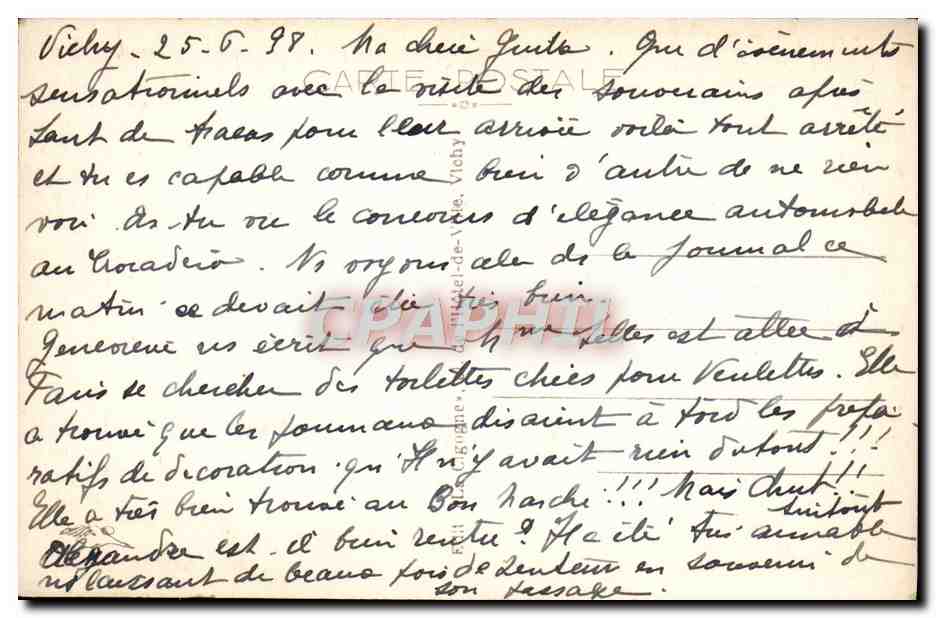 Vichy - 25-6-38. Ma chère Guita. Que d'évènements
CARTE POSTALE
sensationnels avec la visite des souverains après
tant de tracas pour leur arrivée voilà tout arrêté
et tu es capable comme bien d'autre de ne rien
voir. As tu vu le concours d'élégance automobile
au Trocadéro. Ns voyons cela ds le journal ce
matin ce devait être très bien.
Geneviève ns écrit que Mme Selles est allée à
Paris se chercher des toilettes chics pour Venlettes. Elle
a trouvé que les journaux disaient à tord les prépa-
ratifs de décoration qu'il n'y avait rien du tout!!!
Elle a très bien trouvé au Bon Marché!!! Mais chut!!!
surtout
Alexandre est-il bien rentré? Il a été très aimable
ns laissant de beaux pois de senteur en souvenir de
son passage.
Edit "La Cigogne", de l'Hôtel-de-Ville, Vichy
CPAPHIL